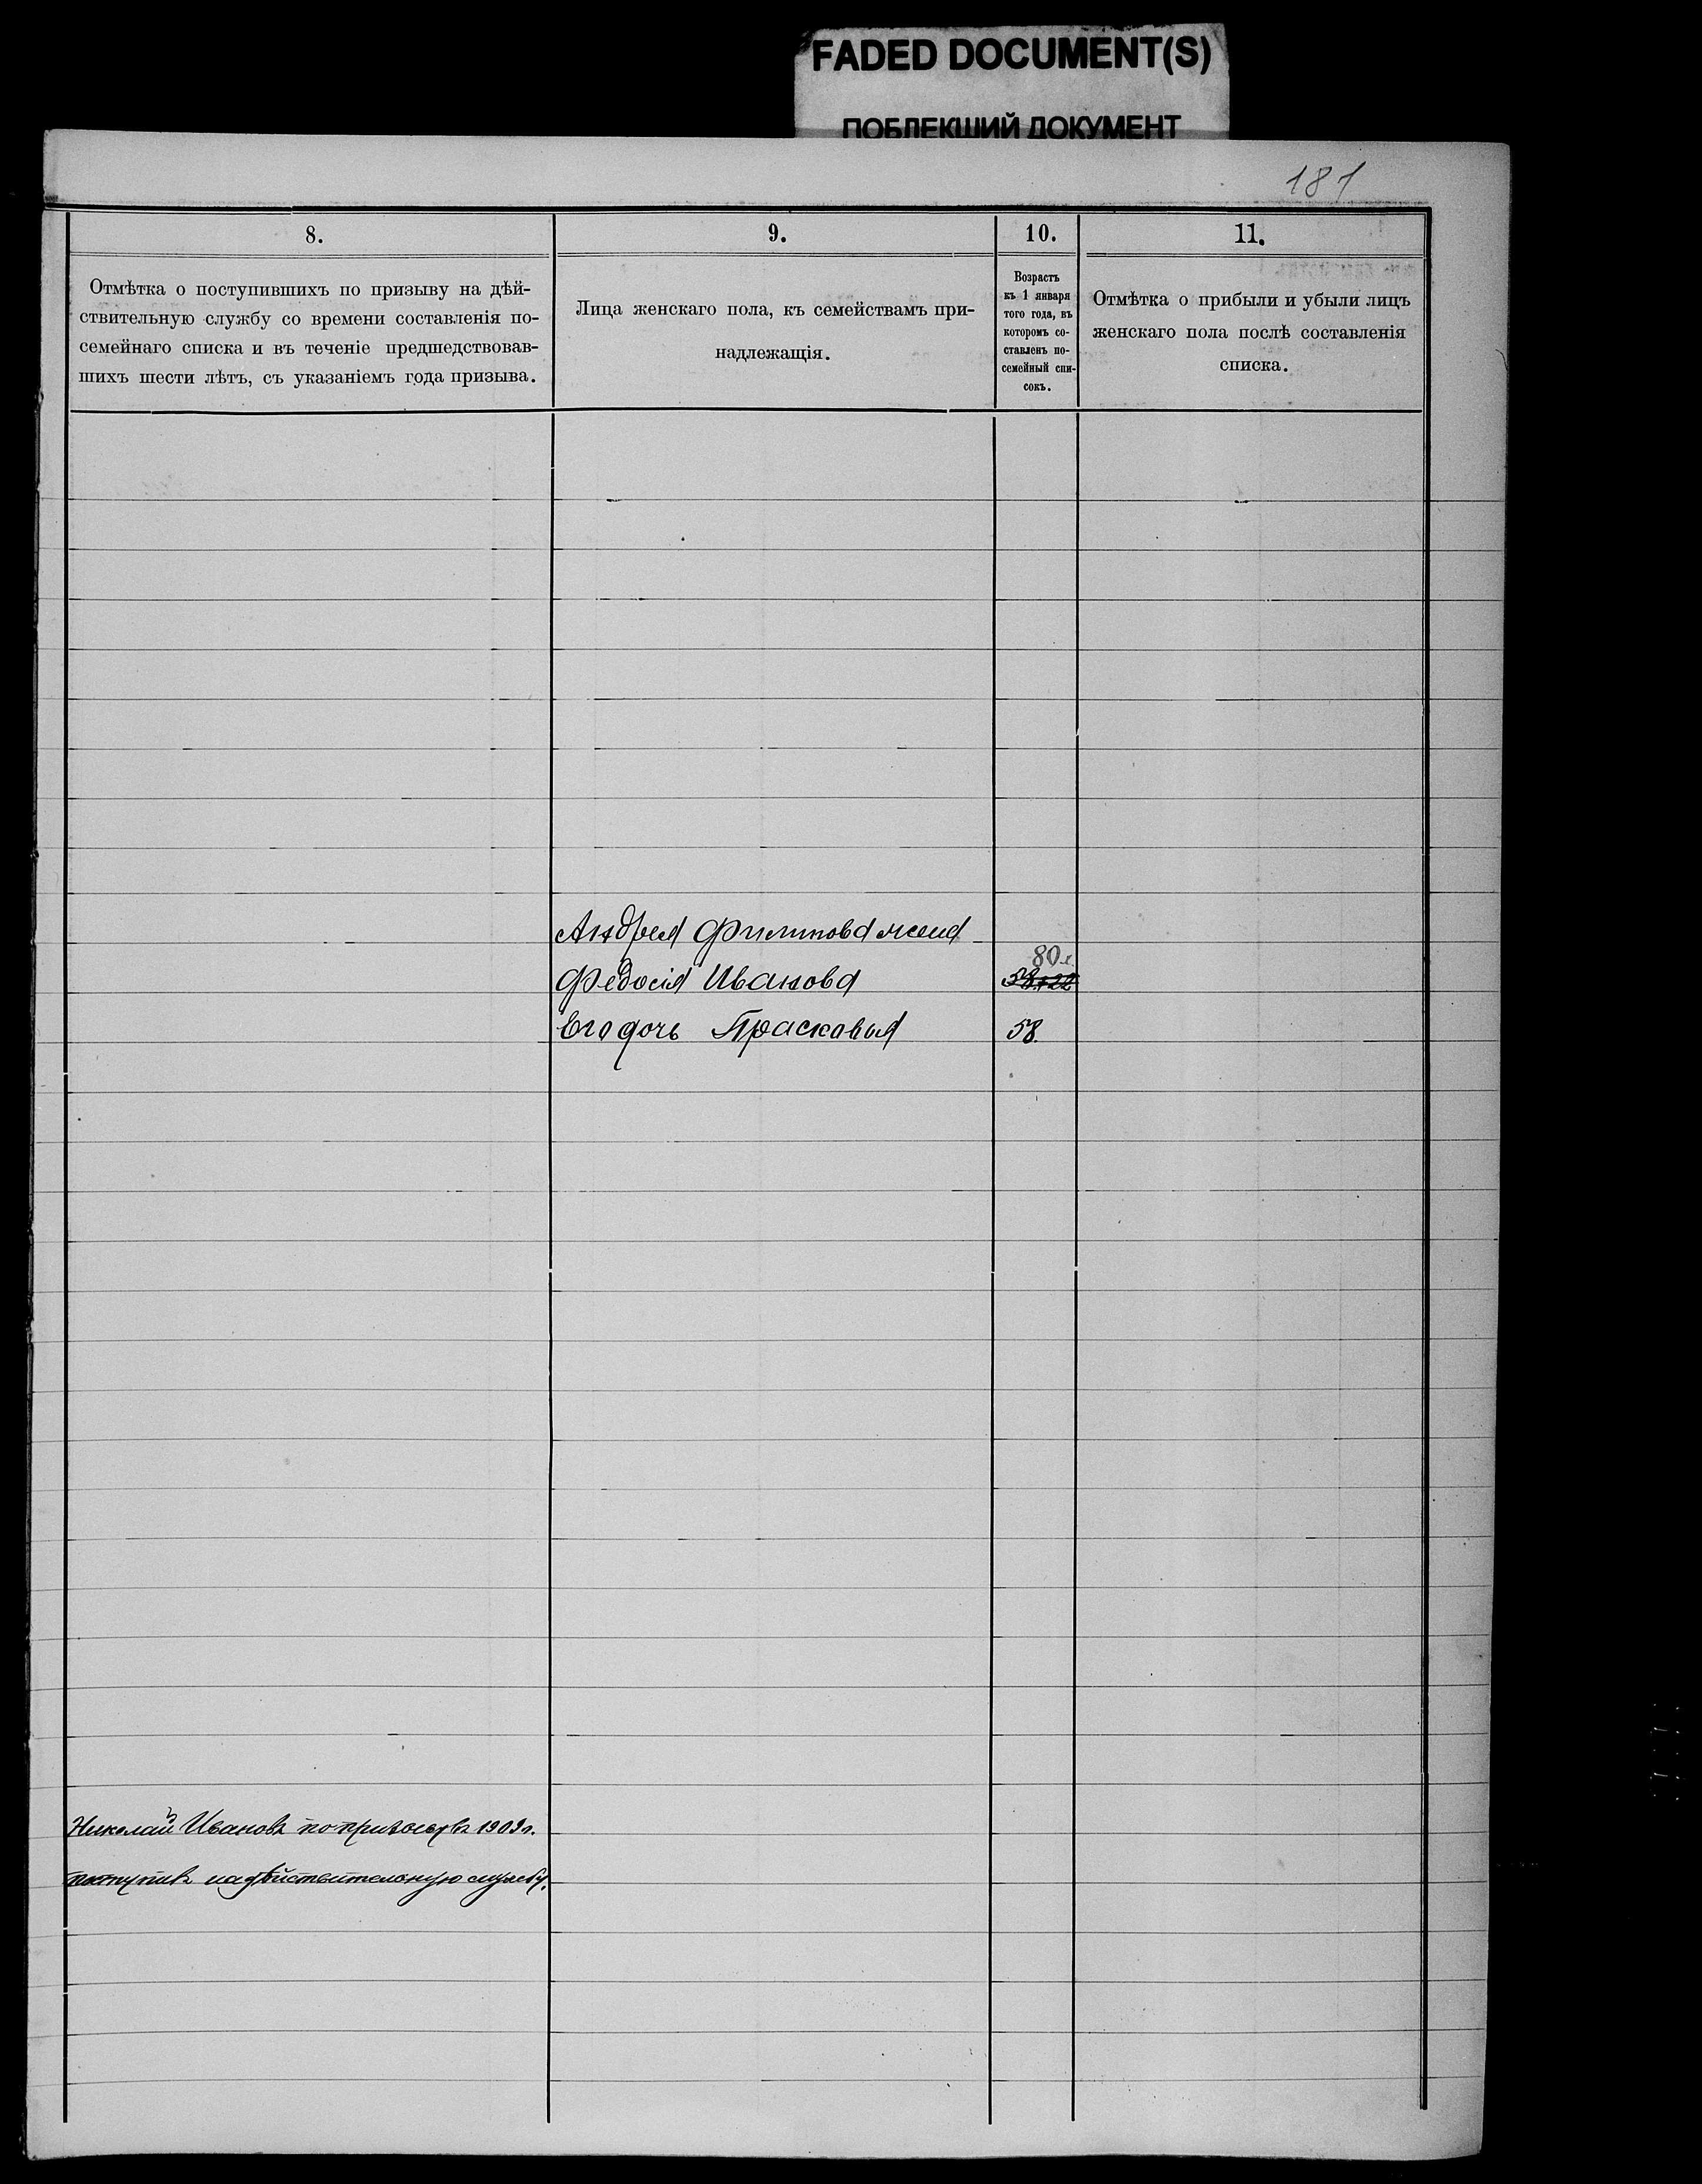 FADED DOCUMENT(S)
ПОБЛЕКШИЙ ДОКУМЕНТ
181
8.
9.
10.
11.
Отмѣтка о поступившихъ по призыву на дѣй-
ствительную службу со времени составленія по-
семейнаго списка и въ теченіе предшедствовав-
шихъ шести лѣтъ, съ указаніемъ года призыва.
Лица женскаго пола, къ семействамъ при-
надлежащія.
Возрастъ
къ 1 января
того года, въ
которомъ со-
ставленъ по-
семейный спи-
сокъ.
Отмѣтка о прибыли и убыли лицъ
женскаго пола послѣ составленія
списка.
Андрея Филипова жена
80 л.
Федосія Иванова 58+22
Его дочь Прасковья 58.
Николай Ивановъ по призыву 1909 г.
поступилъ на дѣйствительную службу.